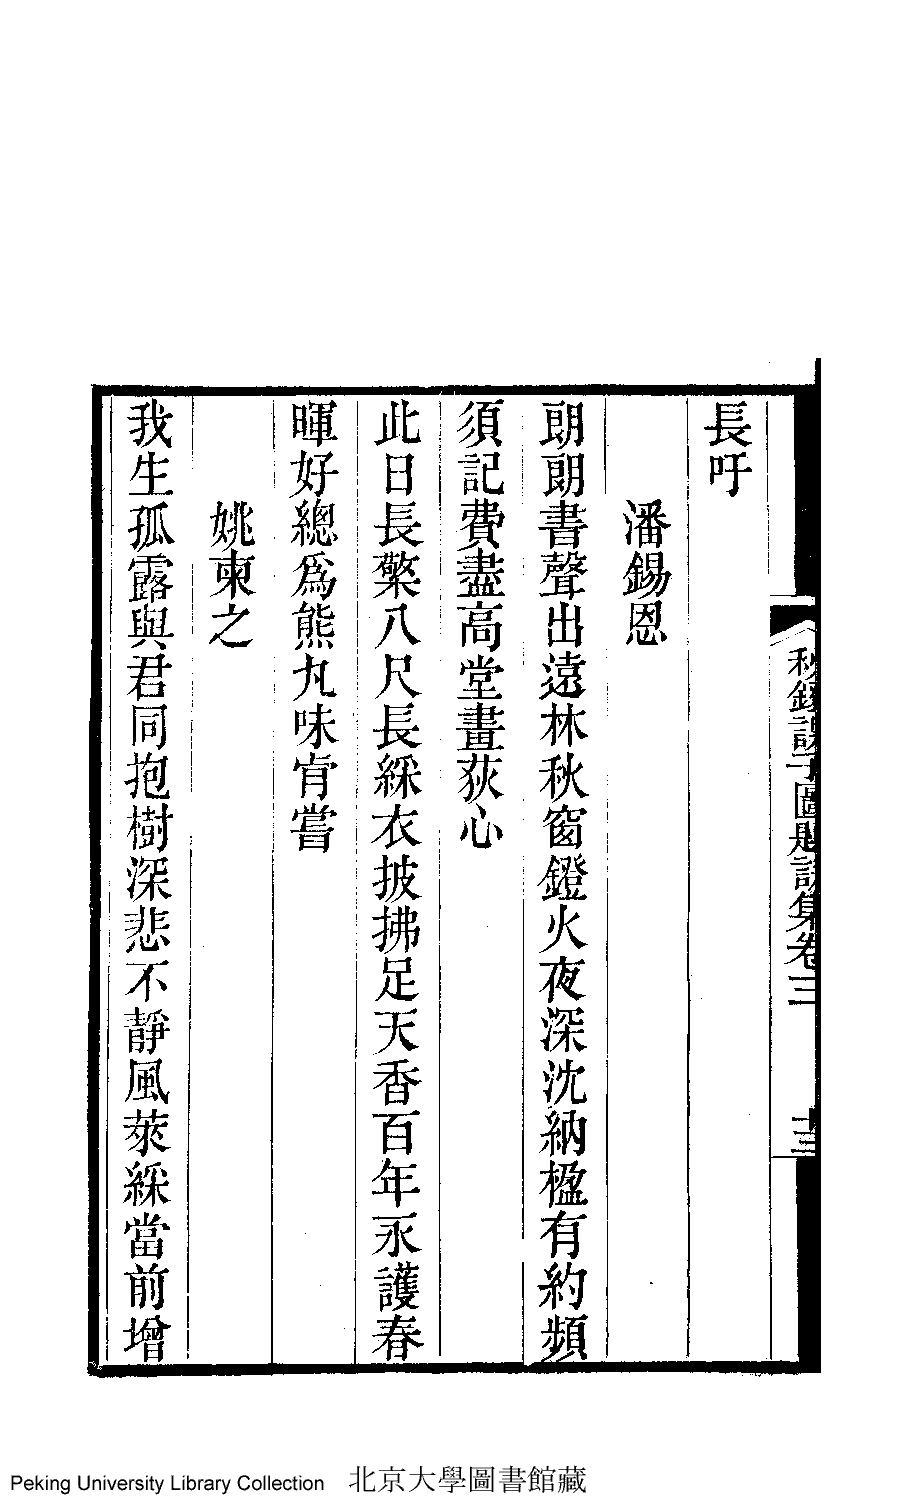 長吁
潘錫恩
朗朗書聲出遠林秋窗鐙火夜深沈納楹有約頻
須記費盡高堂畫荻心
此日長檠八尺長綵衣披拂足天香百年永護春
暉好總爲熊丸味肯嘗
姚柬之
我生孤露與君同抱樹深悲不靜風萊綵當前增
秋鐙課子圖題詠集卷三
十三
Peking University Library Collection 北京大學圖書館藏